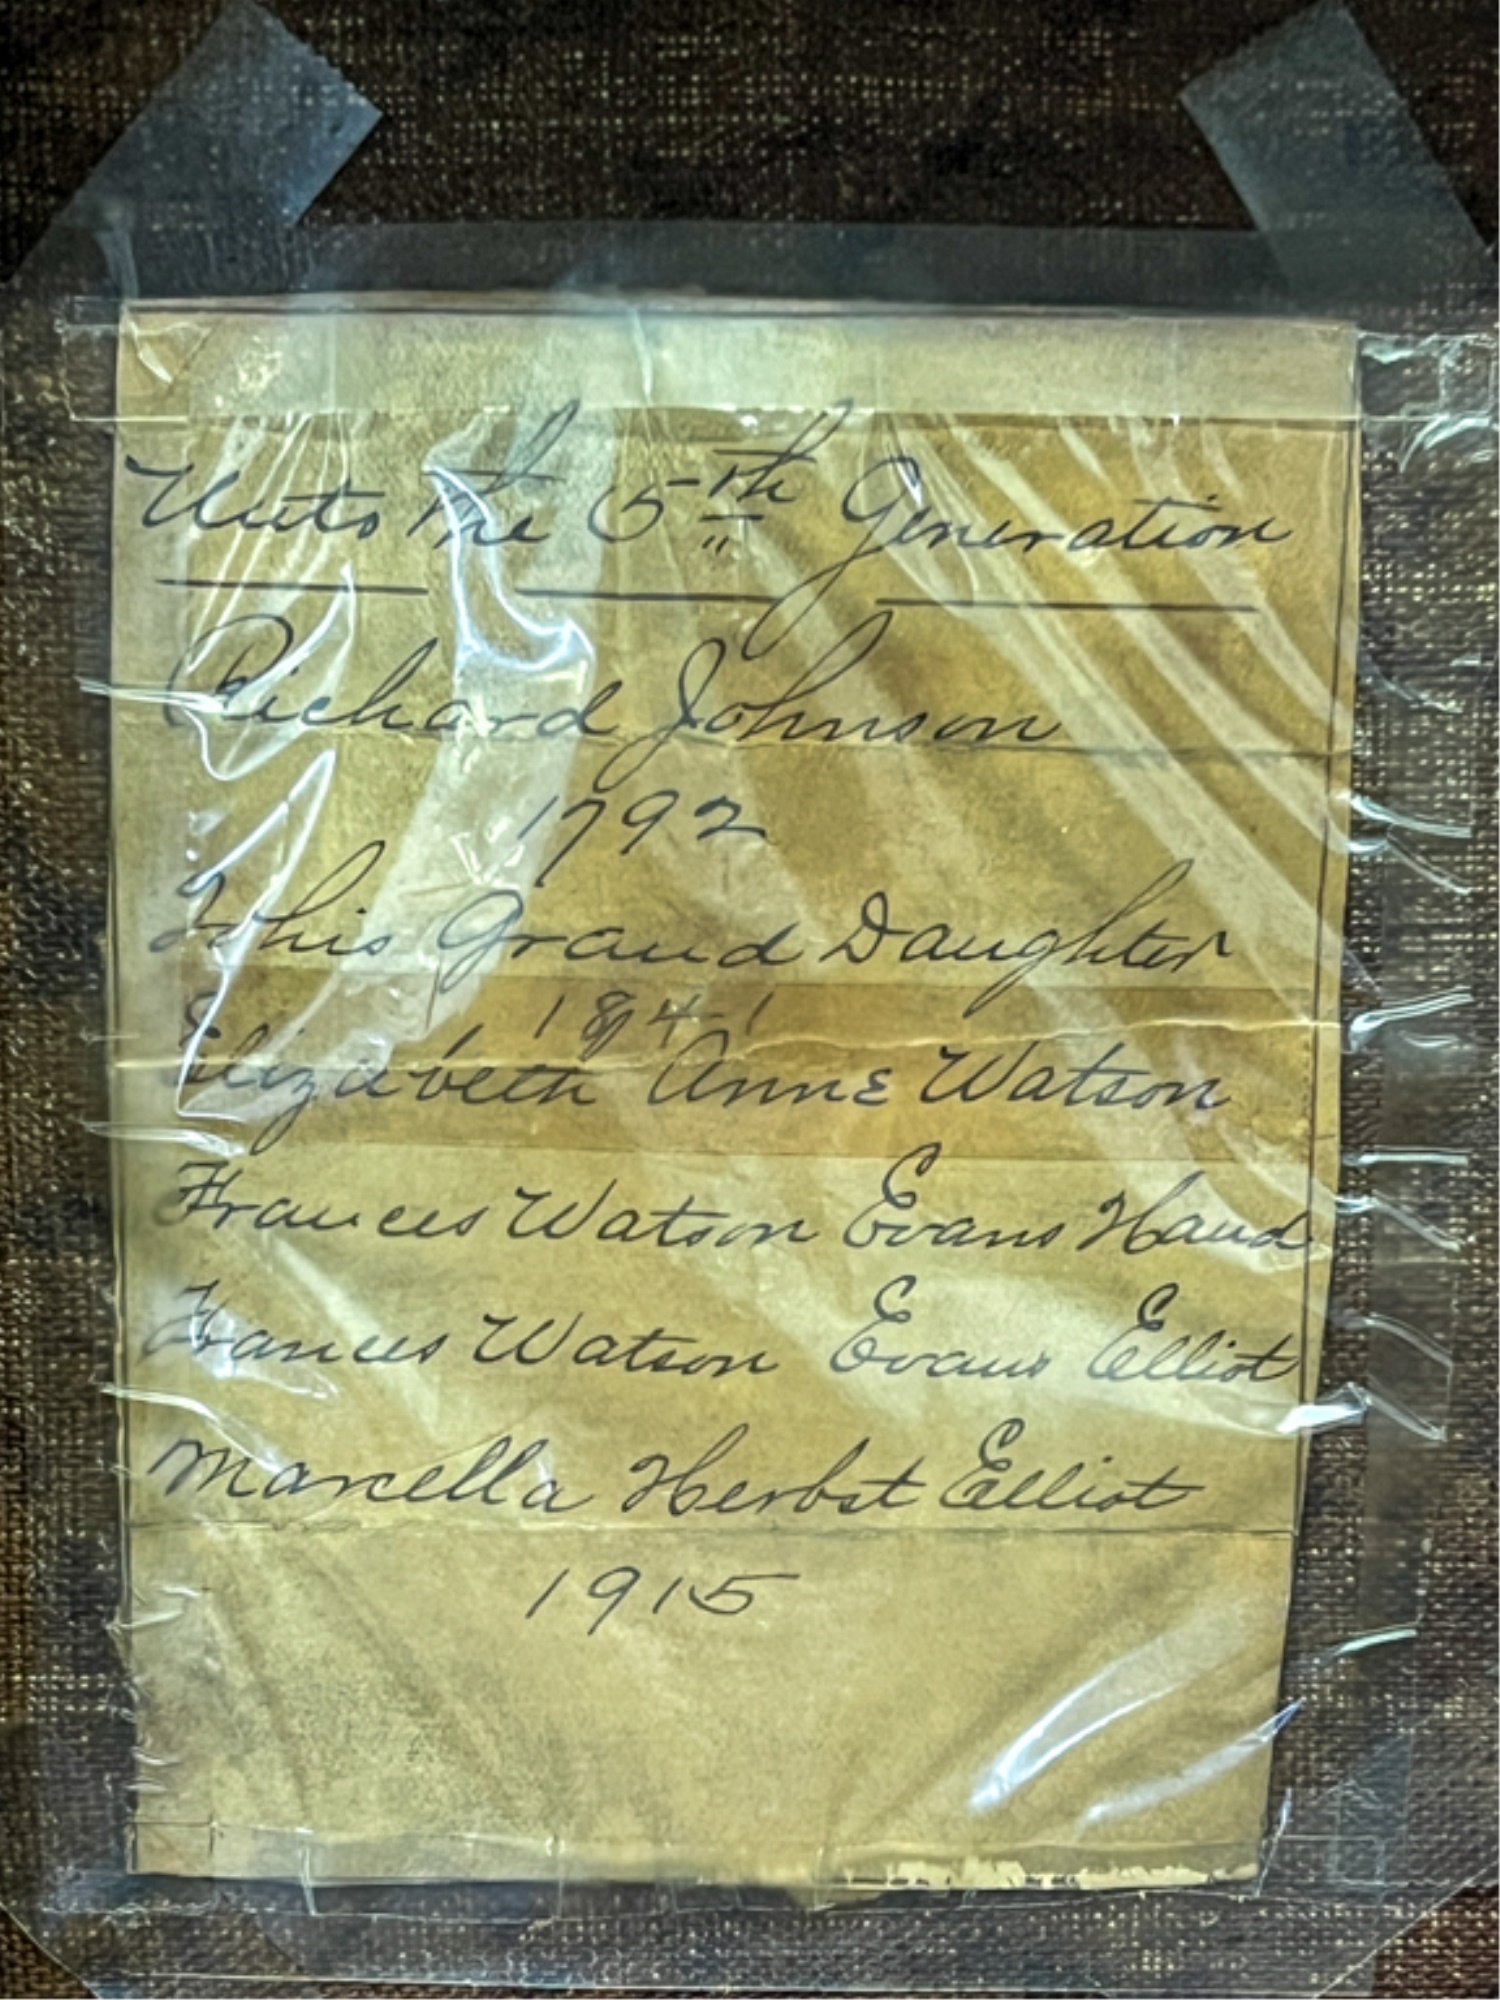 Unto the 5th Generation
Richard Johnson
1792
To his Grand Daughter
1841
Elizabeth Anne Watson
Frances Watson Evans Hand
Frances Watson Evans Elliot
Marcella Herbst Elliot
1915